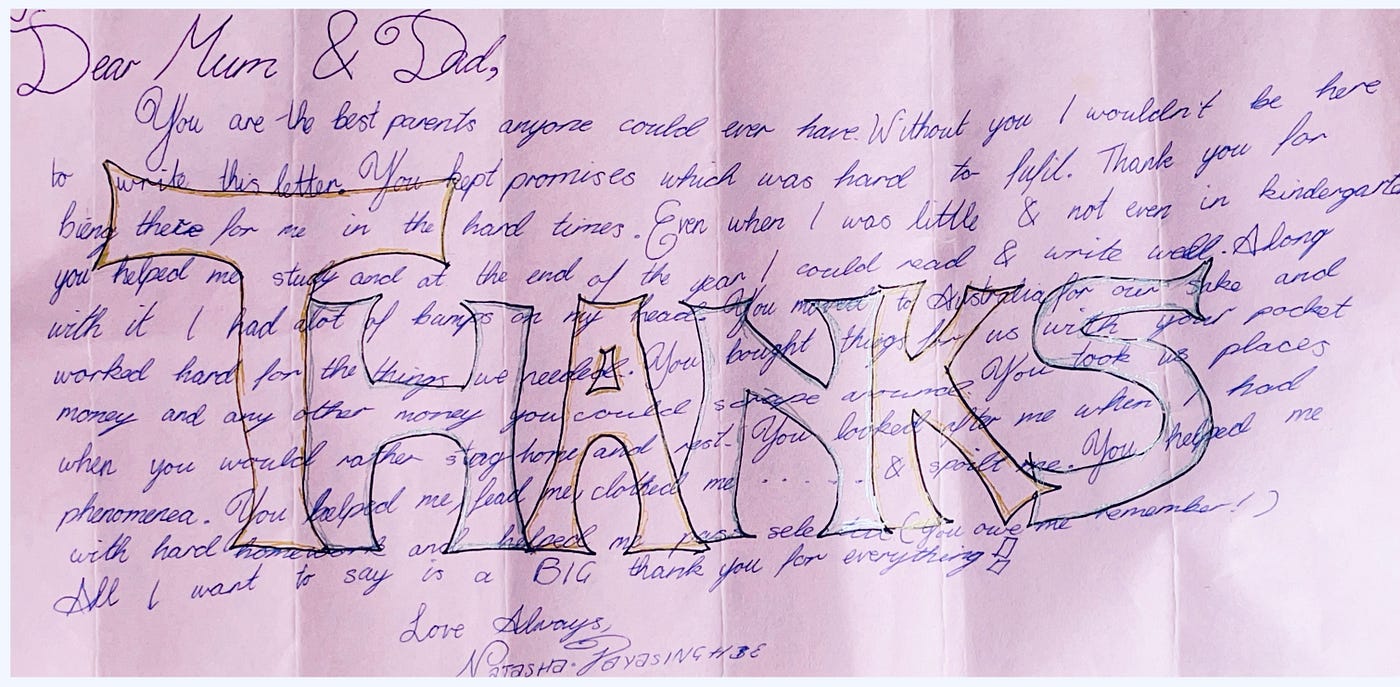 Dear Mum & Dad,
You are the best parents anyone could ever have. Without you I wouldn't be here
to write this letter. You kept promises which was hard to fulfil. Thank you for
bieng there for me in the hard times. Even when I was little & not even in kindergarte
you helped me study and at the end of the year I could read & write well. Along
with it I had alot of bumps on my head. You moved to Australia for our sake and
worked hard for the things we needed. You bought things for us with your pocket
money and any other money you could scrape around. You took us places
when you would rather stay home and rest. You looked after me when I had
phenomenea. You helped me, fead me, clothed me ...... & spoilt me. You helped me
with hard homework and helped me pass (you owe me remember!)
All I want to say is a BIG thank you for everything!!
Love Always,
NATASHA
THANKS